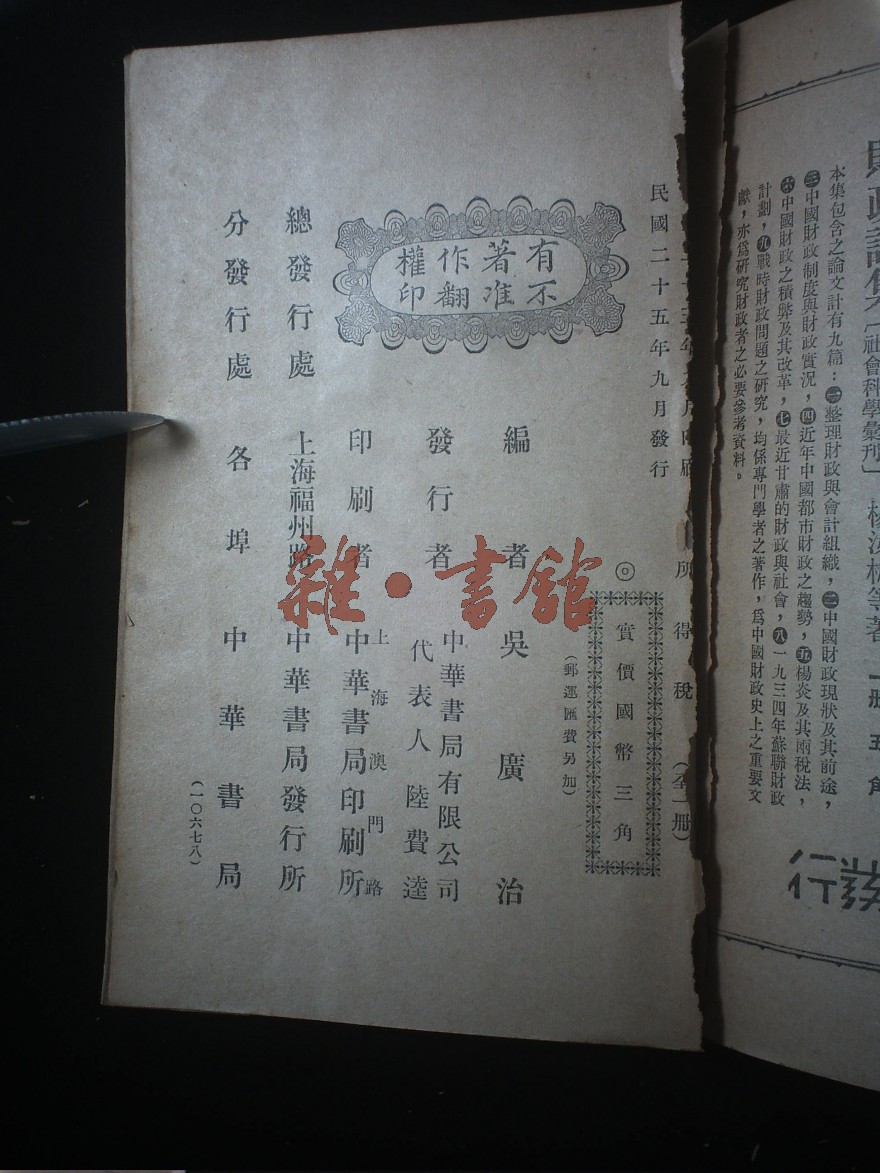 本集包含之論文計有九篇：㊀整理財政與會計組織，㊁中國財政現狀及其前途，
㊂中國財政制度與財政實況，㊃近年中國都市財政之趨勢，㊄楊炎及其兩稅法，
㊅中國財政之積弊及其改革，㊆最近甘肅的財政與社會，㊇一九三四年蘇聯財政
計劃，㊈戰時財政問題之研究，均係專門學者之著作，爲中國財政史上之重要文
獻，亦爲研究財政者之必要參考資料。
民國二十五年九月發行
所得稅（全一册）
◎
實價國幣三角
（郵運匯費另加）
有著作權
不准翻印
編者 吳廣治
發行者 中華書局有限公司
代表人 陸費逵
印刷者 上海澳門路
中華書局印刷所
總發行處 上海福州路 中華書局發行所
分發行處 各埠 中華書局
（一〇六七八）
雜·書館